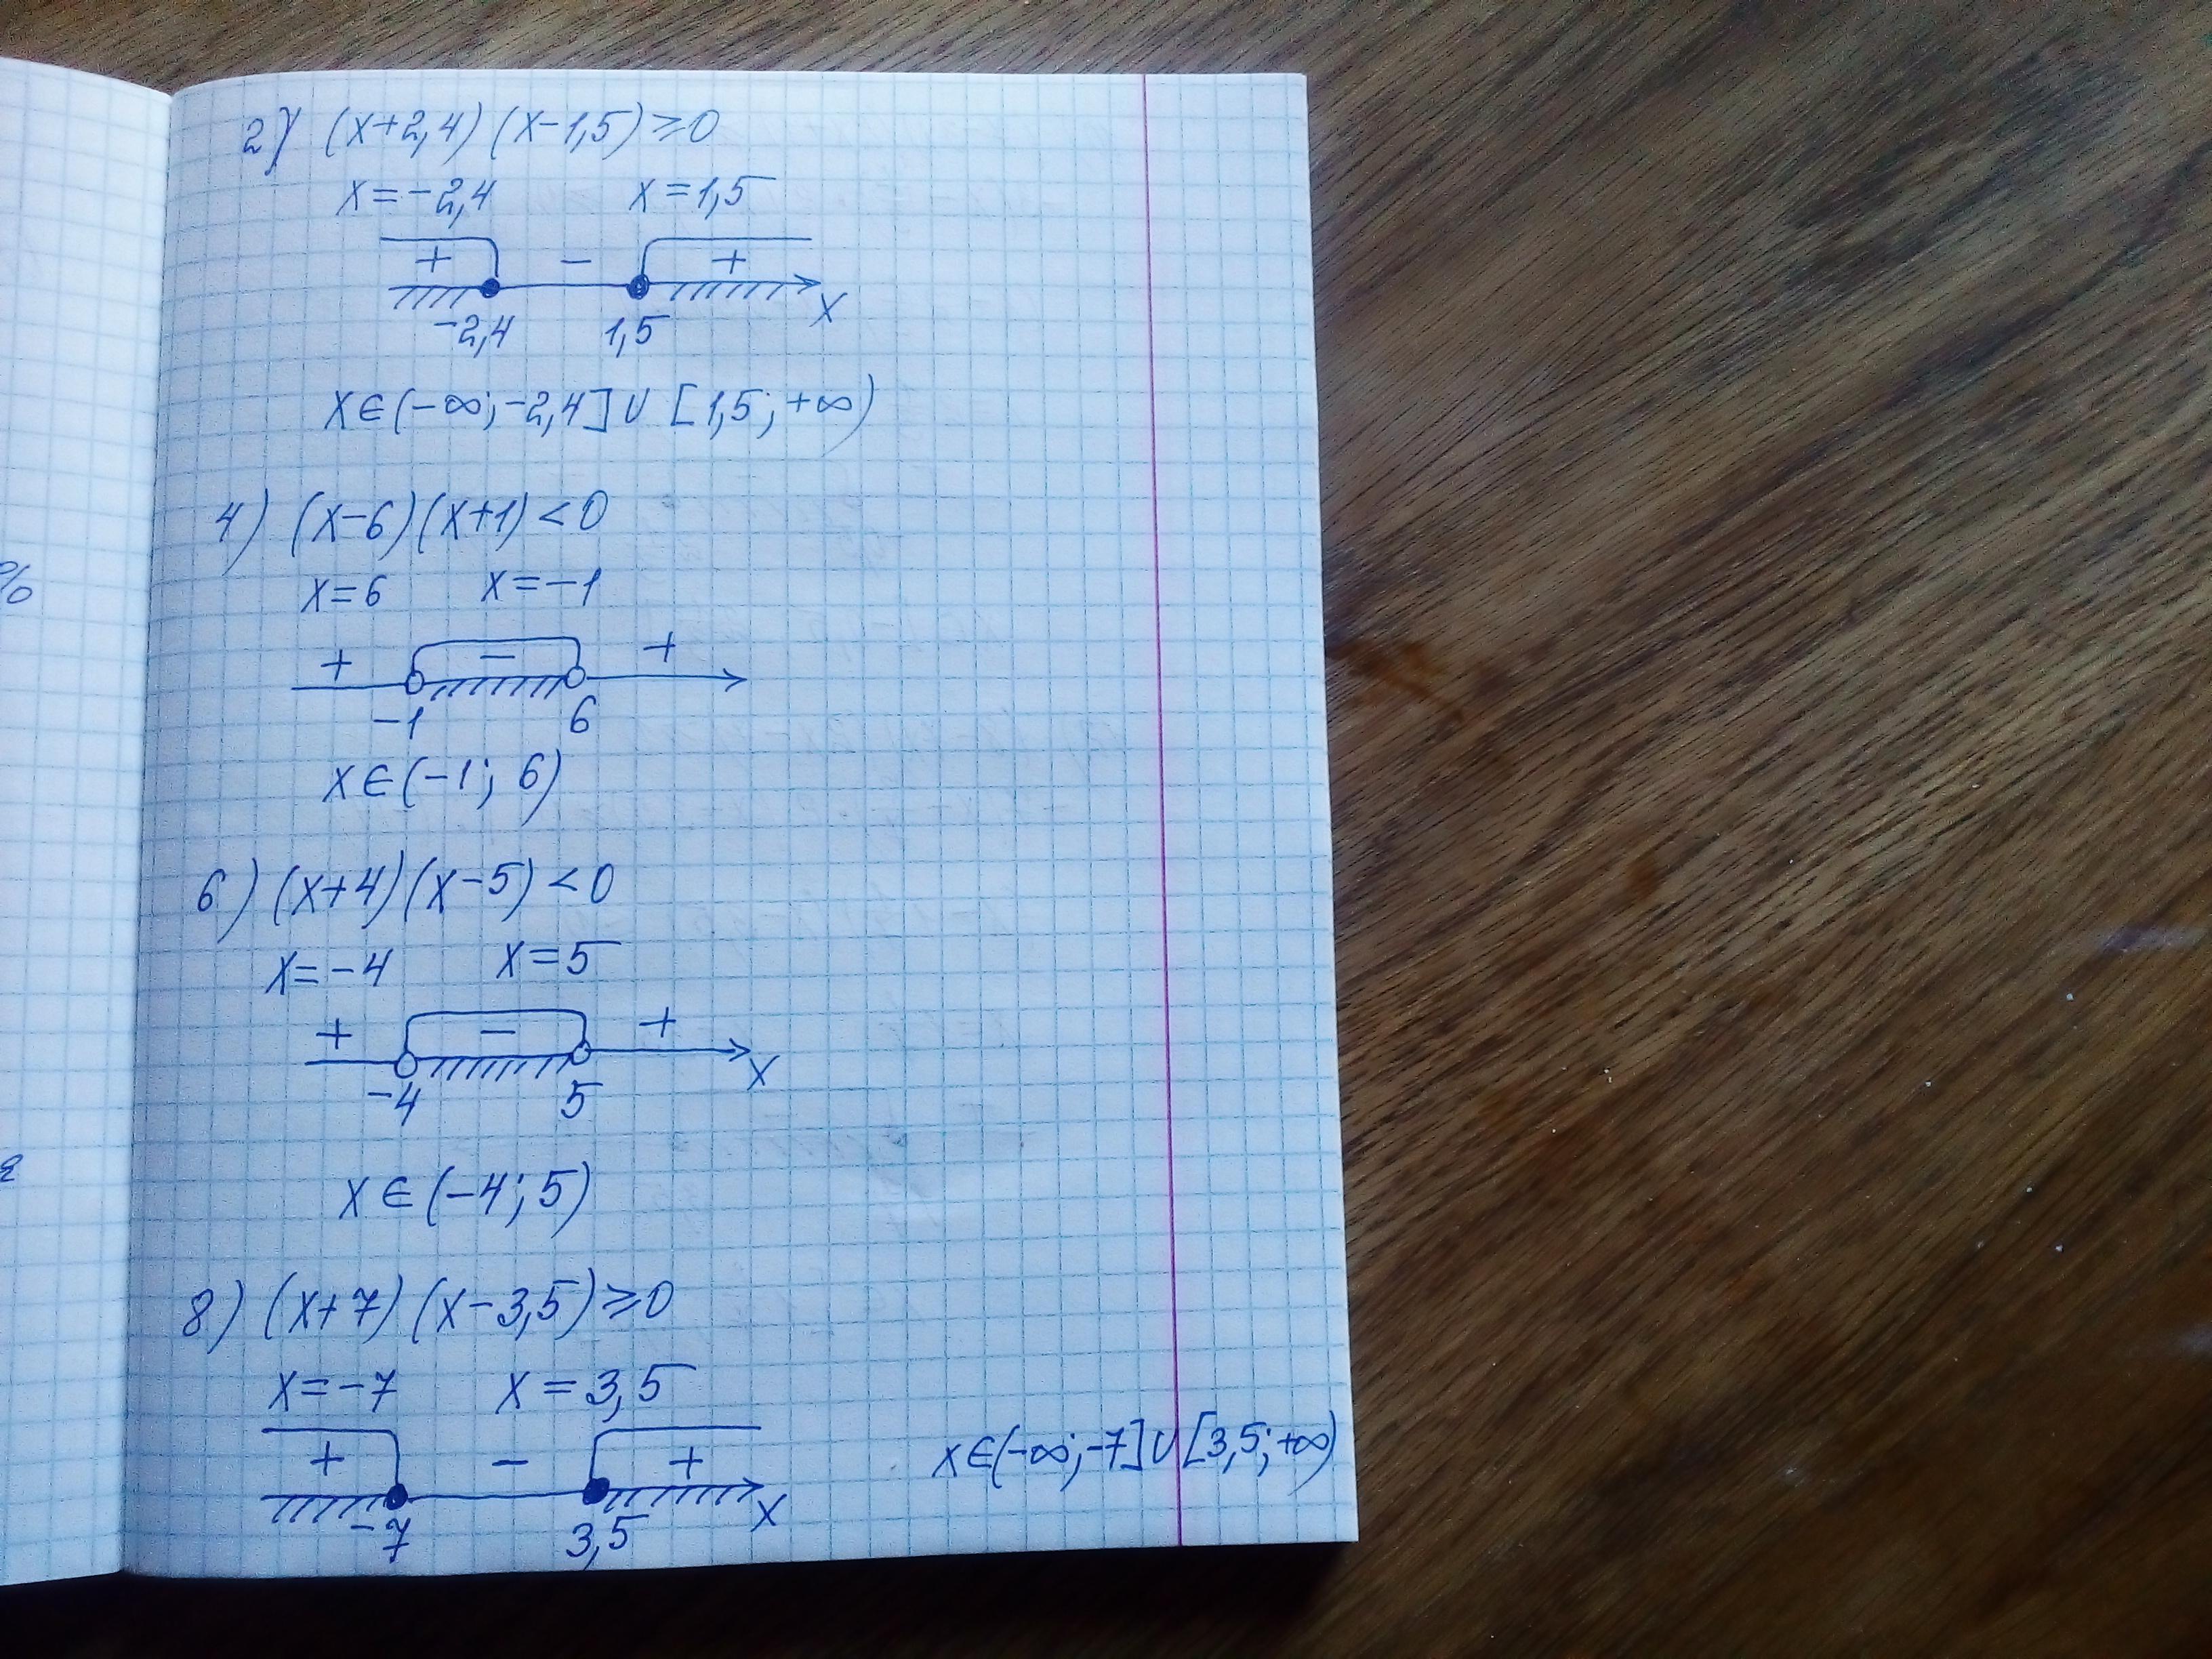 2) (x+2,4)(x-1,5)≥0
x=-2,4 x=1,5
+ - +
-2,4 1,5 x
x∈(-∞;-2,4]∪[1,5;+∞)
4) (x-6)(x+1)<0
x=6 x=-1
+ - +
-1 6
x∈(-1;6)
6) (x+4)(x-5)<0
x=-4 x=5
+ - +
-4 5 x
x∈(-4;5)
8) (x+7)(x-3,5)≥0
x=-7 x=3,5
+ - +
-7 3,5 x
x∈(-∞;-7]∪[3,5;+∞)